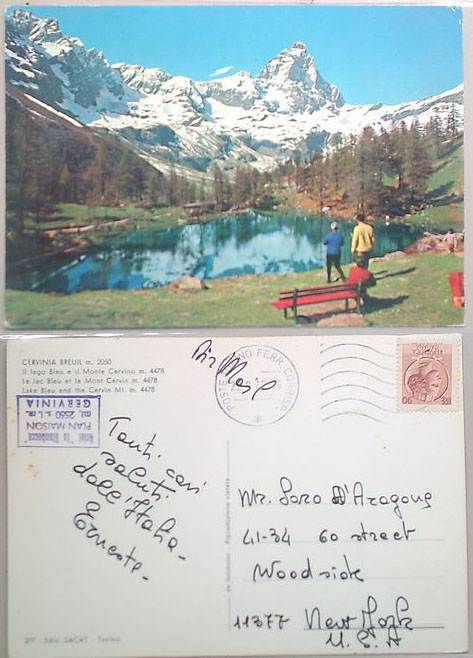 CERVINIA BREUIL m. 2050
Il lago Bleu e il Monte Cervino m. 4478
Le lac Bleu et le Mont Cervin m. 4478
Lake Bleu and the Cervin Mt. m. 4478
PLAN MAISON
mt. 2550 s.l.m.
CERVINIA
POSTE FERR. CORRISP.
90
Tanti cari
saluti
dall'Italia -
Ernesto -
Mr. Saro D'Aragona
41-34 60 street
Woodside
11377 New York
U.S.A
Riproduzione vietata
SACAT - Torino